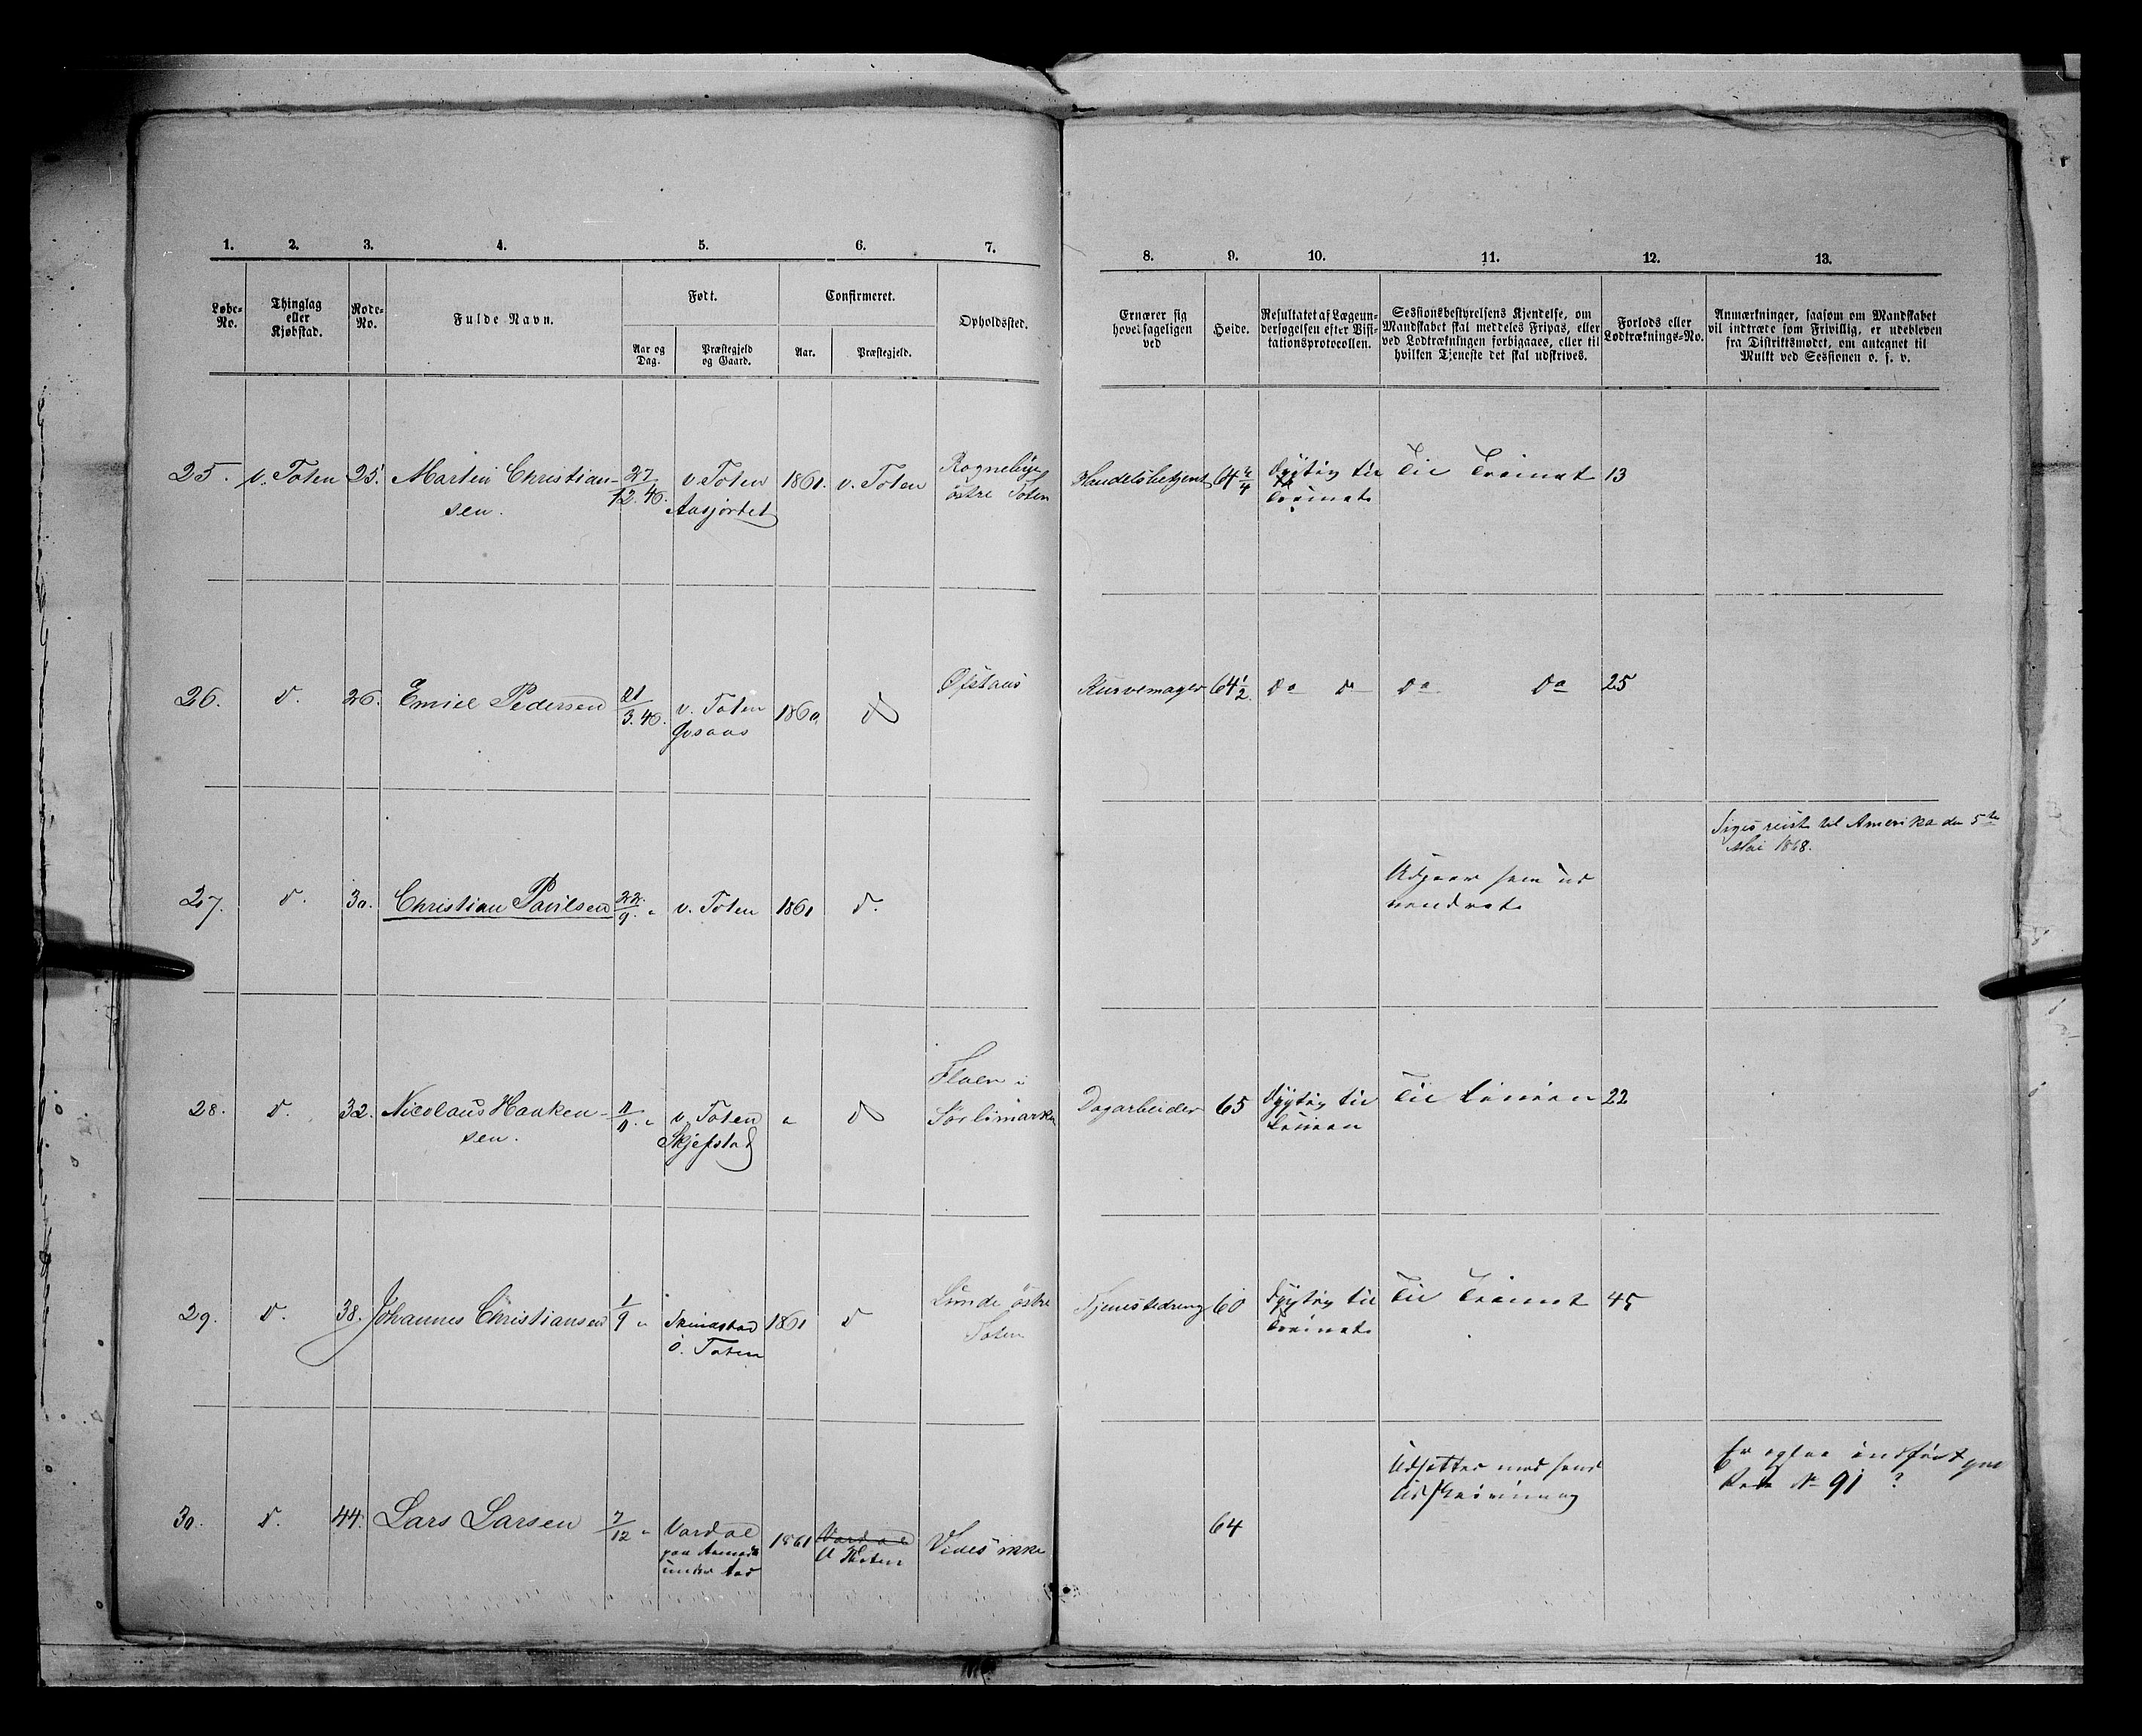 1. 2. 3. 4. 5. 6. 7.
Løbe-No. Thinglag eller Kjøbstad. Rode-No. Fulde Navn. Født. Confirmeret. Opholdssted.
Aar og Dag. Præstegjeld og Gaard. Aar. Præstegjeld.
8. 9. 10. 11. 12. 13.
Ernærer sig hovedsageligen ved
Høide.
Resultatet af Lægeun-
dersøgelsen efter Visi-
tationsprotocollen.
Sessionsbestyrelsens Kjendelse, om
Mandskabet skal meddeles Fripas, eller
ved Lodtrækningen forbigaaes, eller til
hvilken Tjeneste det skal udskrives.
Forlods eller
Lodtræknings-No.
Anmærkninger, saasom om Mandskabet
vil indtræde som Frivillig, er udebleven
fra Distriktsmødet, om antegnet til
Mulkt ved Sessionen o. s. v.
25. v. Toten 25. Martin Christian- 27/12.46. v. Toten 1861. v. Toten Rognebye
sen. østre Toten
Handelsbetjent 64 3/4 Dygtig til Til Trainet 13
Trainet
26. D. 26. Emiel Pedersen 21/3.46. v. Toten 1860. D Øfstaas
Kurvemager 64 1/2 Do D Do Do 25
27. D. 30. Christian Poulsen 22/9. " v. Toten 1861 D.
Udgaar som ud
vandret
Siges reist til Amerika den 5te
Mai 1868.
28. D. 32. Nicolaus Hanken- " v. Toten " D
sen. Skjefstad Sørlimarken
Dagarbeider 65 Dygtig til Til Linien 22
Linien
29. D. 38. Johannes Christiansen 1/9 " 1861 D Lunde østre
Ø. Toten Toten
Tjenestedreng 60 Dygtig til Til Trainet 45
Trainet
30. D. 44. Lars Larsen 7/12 " Vardal 1861 Vardal Vides ikke
under Aas V. Toten
64
Udsættes med hans
Udskrivning
Er ogsaa indført paa
Rode No 91 ?